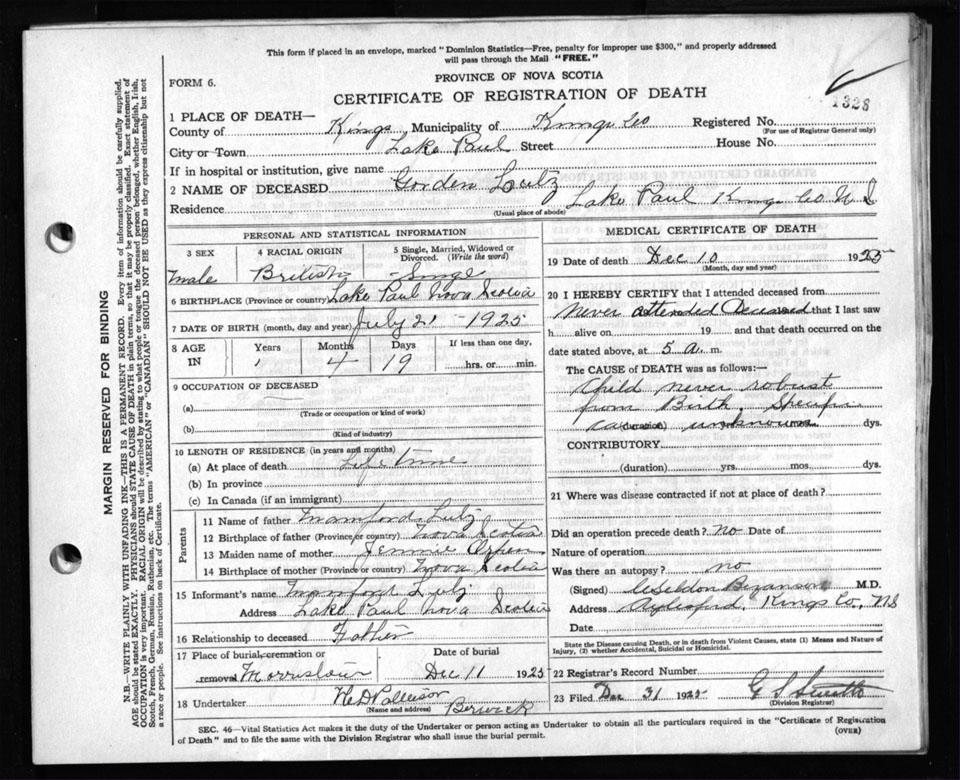 This form if placed in an envelope, marked "Dominion Statistics—Free, penalty for improper use $300," and properly addressed
will pass through the Mail "FREE."
PROVINCE OF NOVA SCOTIA
FORM 6.
CERTIFICATE OF REGISTRATION OF DEATH
1328
1 PLACE OF DEATH—
County of Kings, Municipality of Kings Co Registered No.
(For use of Registrar General only)
City or Town Lake Paul Street House No.
If in hospital or institution, give name
2 NAME OF DECEASED Gorden Lutz
Residence Lake Paul Kings Co N S
(Usual place of abode)
PERSONAL AND STATISTICAL INFORMATION
3 SEX 4 RACIAL ORIGIN 5 Single, Married, Widowed or Divorced. (Write the word)
male British Singe
6 BIRTHPLACE (Province or country) Lake Paul Nova Scotia
7 DATE OF BIRTH (month, day and year) July 21 - 1925
8 AGE IN Years Months Days If less than one day,
4 19 hrs. or min.
9 OCCUPATION OF DECEASED
(a)
(Trade or occupation or kind of work)
(b)
(Kind of industry)
10 LENGTH OF RESIDENCE (in years and months)
(a) At place of death Life time
(b) In province
(c) In Canada (if an immigrant)
Parents
11 Name of father Lutz
12 Birthplace of father (Province or country) Nova Scotia
13 Maiden name of mother Jennie
14 Birthplace of mother (Province or country) Nova Scotia
15 Informant's name Lutz
Address Lake Paul Nova Scotia
16 Relationship to deceased Father
17 Place of burial, cremation or removal Morristown
Date of burial
Dec 11 1925
18 Undertaker
(Name and address) Berwick
MEDICAL CERTIFICATE OF DEATH
19 Date of death Dec 10 1925
(Month, day and year)
20 I HEREBY CERTIFY that I attended deceased from
Never attended Deceased that I last saw
h alive on 19 and that death occurred on the
date stated above, at 5 a. m.
The CAUSE of DEATH was as follows:—
Child never robust
from Birth. Specific
cause unknown
(duration) mos. dys.
CONTRIBUTORY
(duration) yrs. mos. dys.
21 Where was disease contracted if not at place of death?
Did an operation precede death? No Date of
Nature of operation
Was there an autopsy? no
(Signed) M.D.
Address Aylesford, Kings Co, NS
Date
State the Disease causing Death, or in death from Violent Causes, state (1) Means and Nature of
Injury, (2) whether Accidental, Suicidal or Homicidal.
22 Registrar's Record Number
23 Filed Dec 31 1925 G S Smith
(Division Registrar)
SEC. 46—Vital Statistics Act makes it the duty of the Undertaker or person acting as Undertaker to obtain all the particulars required in the "Certificate of Registration
of Death" and to file the same with the Division Registrar who shall issue the burial permit.
(OVER)
MARGIN RESERVED FOR BINDING
N.B.—WRITE PLAINLY WITH UNFADING INK—THIS IS A PERMANENT RECORD. Every item of information should be carefully supplied.
AGE should be stated EXACTLY. PHYSICIANS should STATE CAUSE OF DEATH in plain terms, so that it may be properly classified. Exact statement of
OCCUPATION is very important. RACIAL ORIGIN will be described by stating to what people or tongue the deceased person belonged, whether English, Irish,
Scotch, French, German, Russian, Ruthenian, etc. The terms "AMERICAN" or "CANADIAN" SHOULD NOT BE USED as they express citizenship but not
a race or people. See instructions on back of Certificate.